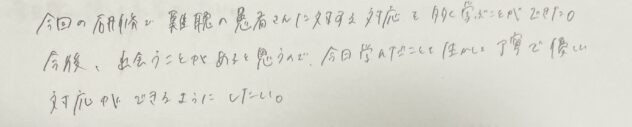 今回の研修で難聴の患者さんに対する対応を多く学ぶことができた。
今後、出会うことがあると思うので、今日学んだことを生かして丁寧で優しい
対応ができるようにしたい。